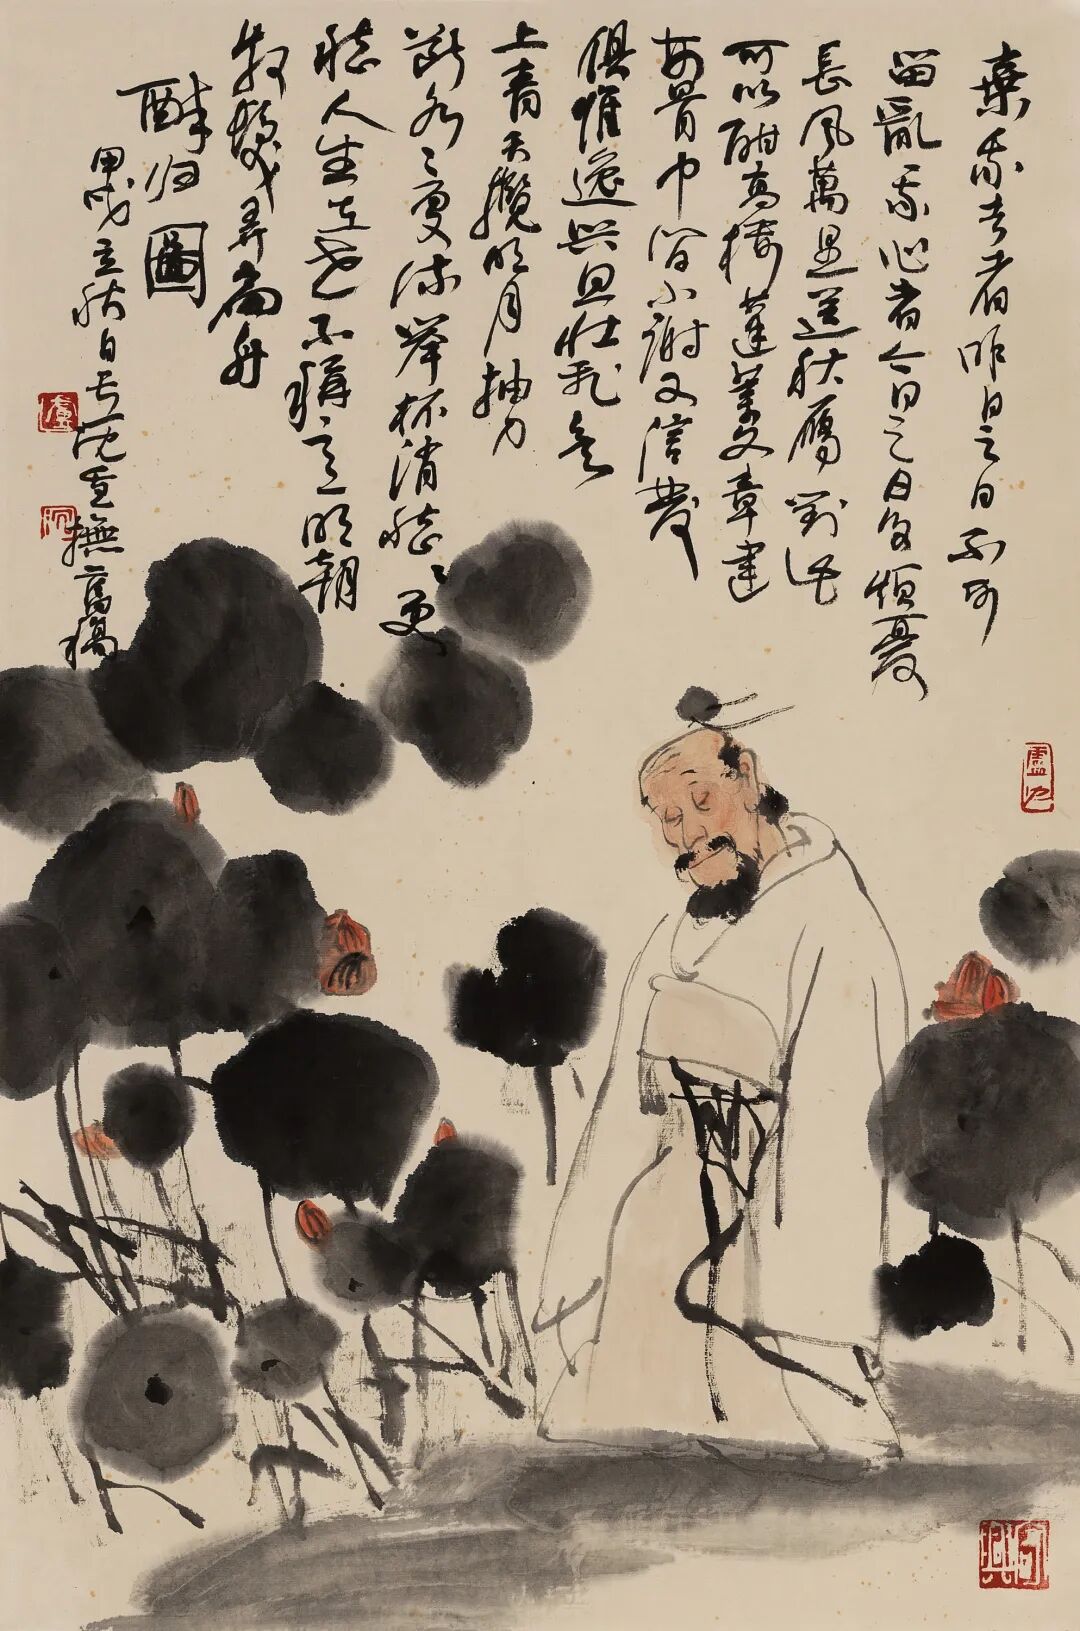 棄我去者昨日之日不可
留亂我心者今日之日多煩憂
長風萬里送秋雁對此
可以酣高樓蓬萊文章建
安骨中間小謝又清發
俱懷逸興思壯飛欲
上青天攬明月抽刀
斷水水更流舉杯消愁愁更
愁人生在世不稱意明朝
散髮弄扁舟
醉归圖
甲戌立秋日撫舊稿
盧
沉
盧沉